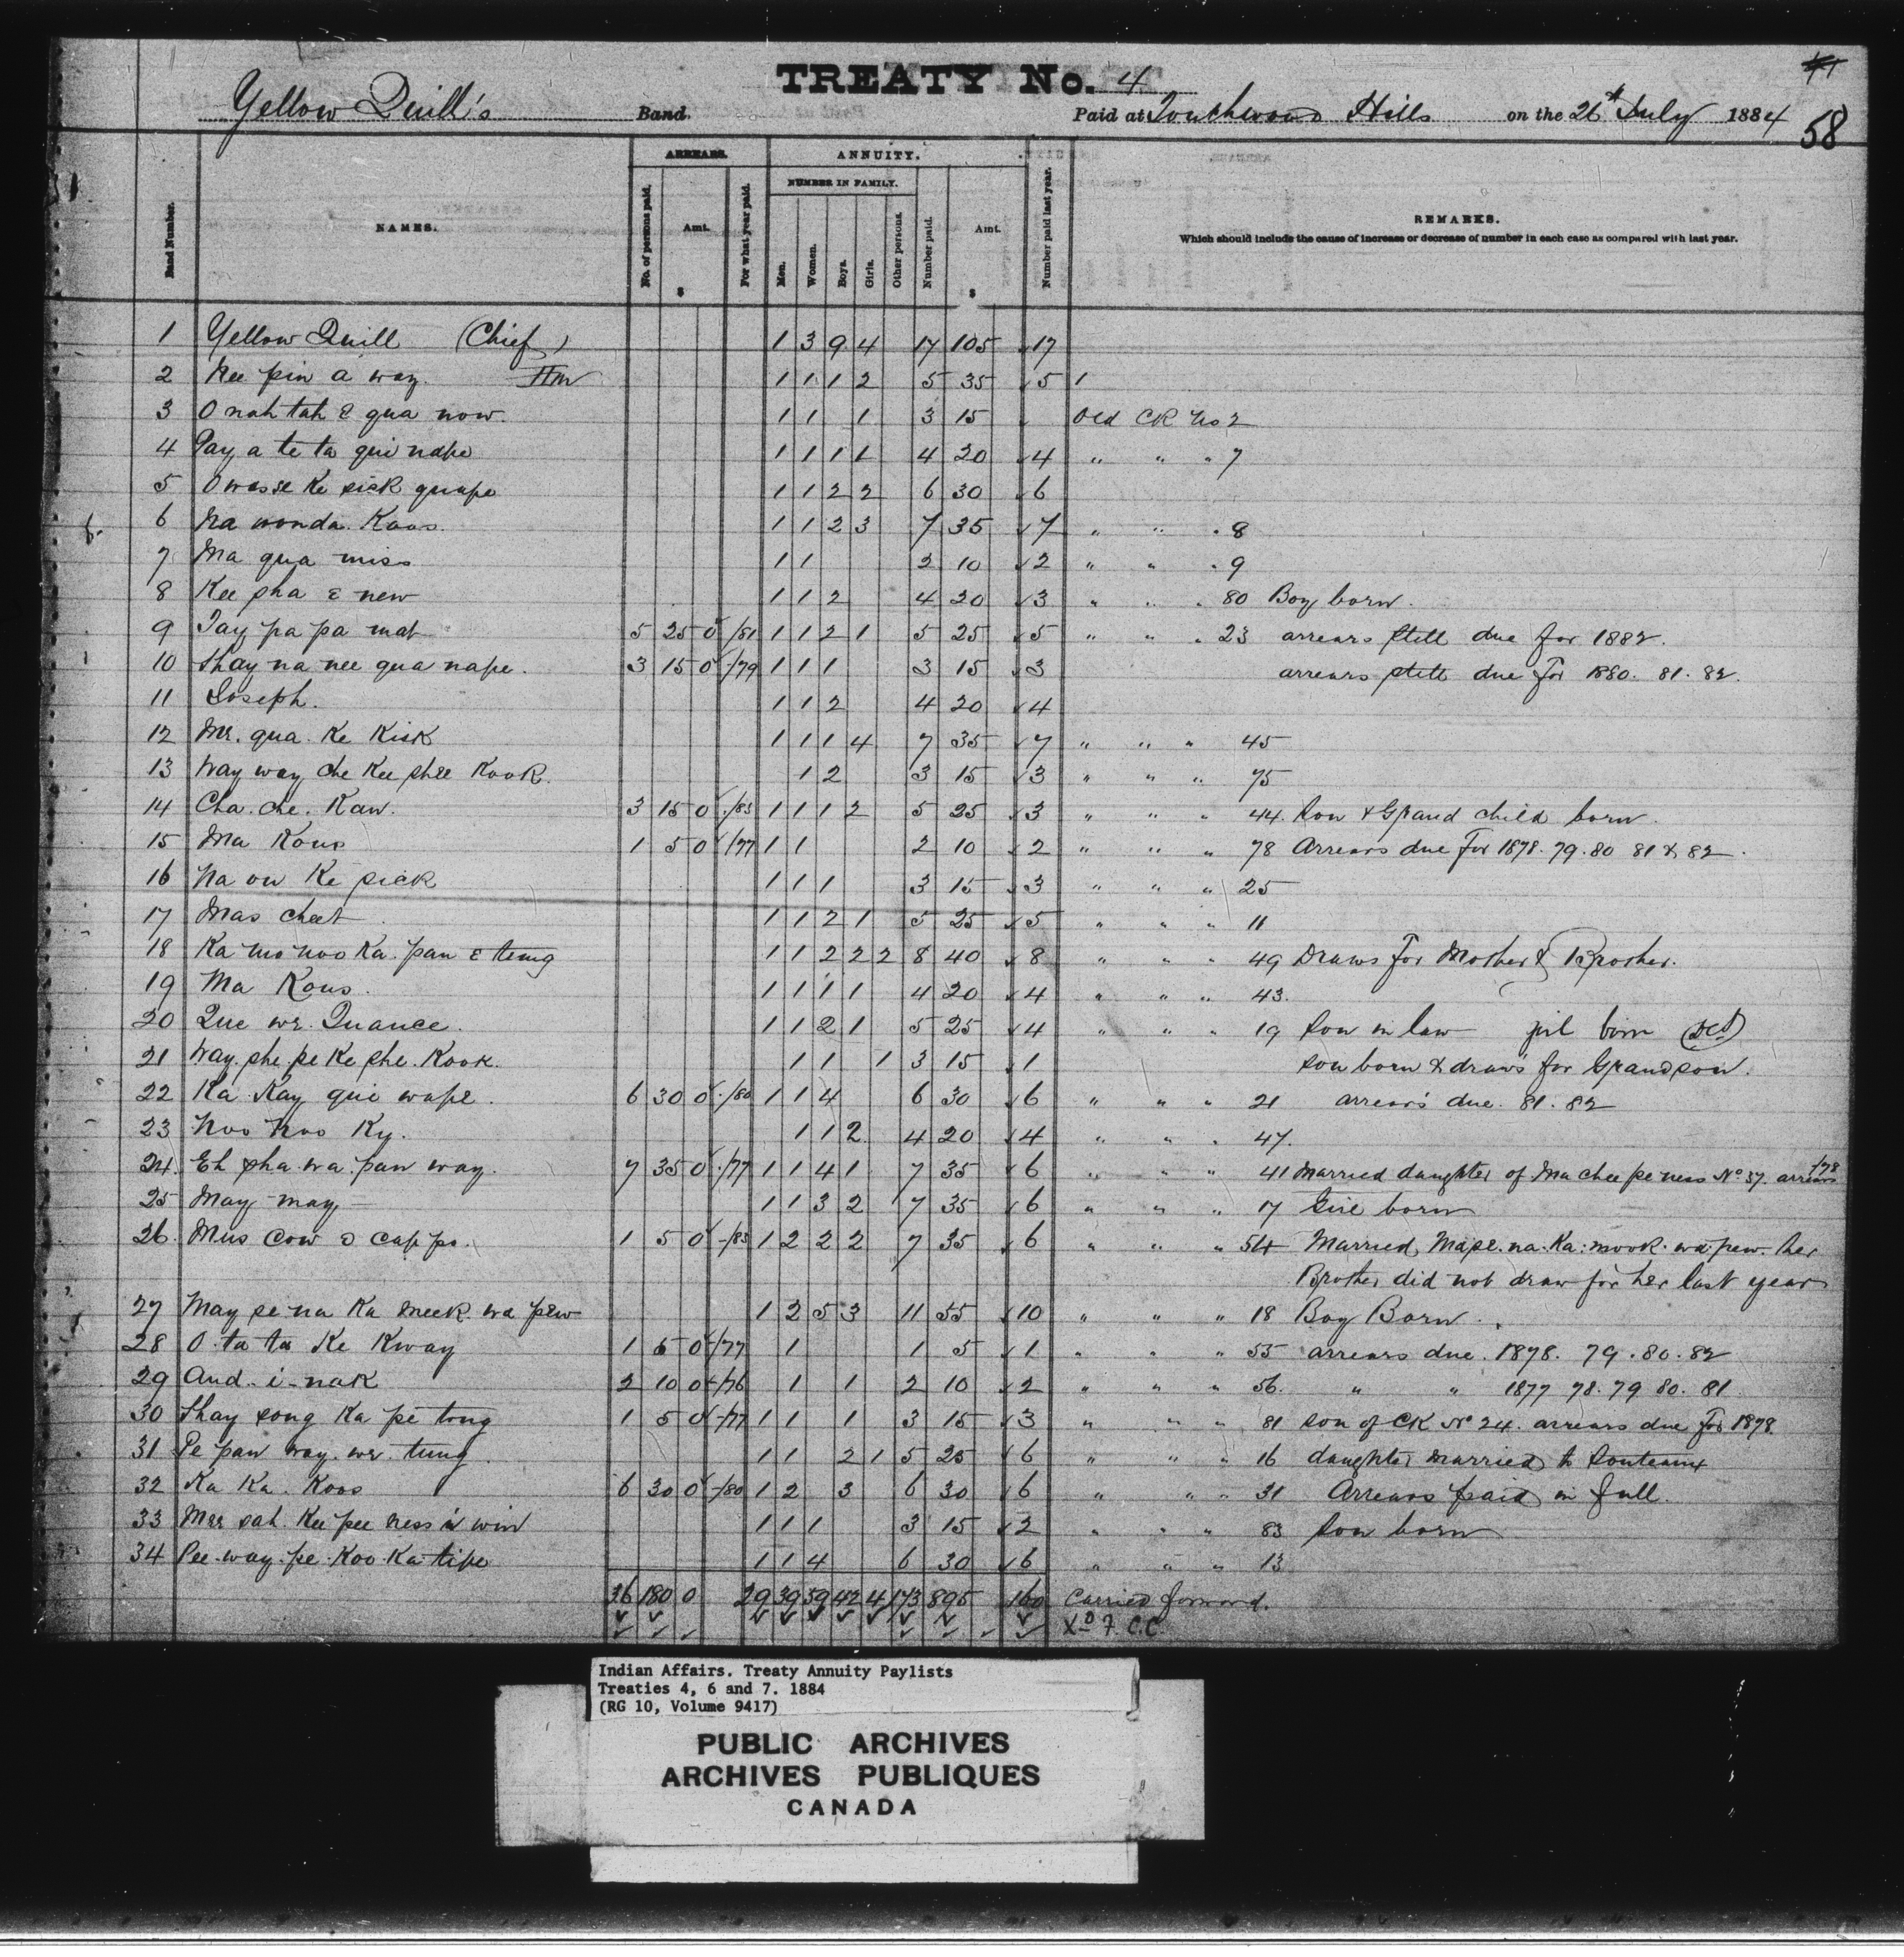 TREATY No. 4
58
Yellow Quill's Band. Paid at Touchwood Hills on the 26th July 1884
ARREARS. ANNUITY.
NUMBER IN FAMILY.
Band Number. NAMES. No. of persons paid. Amt. $ For what year paid. Men. Women. Boys. Girls. Other persons. Number paid. Amt. $ Number paid last year. REMARKS.
Which should include the cause of increase or decrease of number in each case as compared with last year.
1 Yellow Quill (Chief) 1 3 9 4 17 105 ✓17
2 Kee pin a way. Hm 1 1 1 2 5 35 ✓5 1
3 O nah tah e qua now. 1 1 1 3 15 Old CK No 2
4 Pay a te ta qui nape 1 1 1 1 4 20 ✓4 " " " 7
5 O wasse Ke sick quape 1 1 2 2 6 30 ✓6
6 Na wonda Koos. 1 1 2 3 7 35 ✓7 " " " 8
7 Ma qua miss 1 1 2 10 ✓2 " " " 9
8 Kee sha e new 1 1 2 4 20 ✓3 " " " 80 Boy born.
9 Tay pa pa mat 5 25 0 /81 1 1 2 1 5 25 ✓5 " " " 23 arrears still due for 1882.
10 Shay na nee qua nape. 3 15 0 /79 1 1 1 3 15 ✓3 arrears still due for 1880. 81. 82.
11 Joseph. 1 1 2 4 20 ✓4
12 Me. qua. Ke Kisk 1 1 1 4 7 35 ✓7 " " " 45
13 Way way che Kee shee Kook. 1 2 3 15 ✓3 " " " 75
14 Cha. che. Kaw. 3 15 0 /83 1 1 1 2 5 25 ✓3 " " " 44. Son & Grand child born.
15 Ma Kous 1 5 0 /77 1 1 2 10 ✓2 " " " 78 Arrears due for 1878. 79. 80 81 & 82.
16 Na ow Ke sick 1 1 1 3 15 ✓3 " " " 25
17 Mas cheet 1 1 2 1 5 25 ✓5 " " " 11
18 Ka mo noo Ka. pan e tung 1 1 2 2 2 8 40 ✓8 " " " 49 Draws for Mother & Brother.
19 Ma Kous. 1 1 1 1 4 20 ✓4 " " " 43.
20 Que we. Quance. 1 1 2 1 5 25 ✓4 " " " 19 Son in law girl born
21 Way. she. pe Ke she. Kook. 1 1 1 3 15 ✓1 son born & draws for Grandson.
22 Ka Kay qui wape. 6 30 0 /80 1 1 4 6 30 ✓6 " " " 21 arrears due. 81. 82
23 Noo Noo Ky. 1 1 2 4 20 ✓4 " " " 47.
24. Eh sha. wa. pan way. 7 35 0 /77 1 1 4 1 7 35 ✓6 " " " 41 Married daughter of Ma chee pe ness No 37. arrears /78
25 May-may 1 1 3 2 7 35 ✓6 " " " 17 Girl born
26. Mus Cow o capps. 1 5 0 /83 1 2 2 2 7 35 ✓6 " " " 54 Married, Mape. na. Ka. mook. wa. pew. her
Brother did not draw for her last year
27 May se na Ka meek. wa pew 1 2 5 3 11 55 ✓10 " " " 18 Boy Born.
28 O. ta ta Ke Kway 1 5 0 /77 1 1 5 ✓1 " " " 55 arrears due. 1878. 79. 80. 82
29 And-i-nak 2 10 0 /76 1 1 2 10 ✓2 " " " 56. " " 1877 78. 79 80. 81
30 Shay song Ka pe tung 1 5 0 /77 1 1 1 3 15 ✓3 " " " 81 son of CK No 24. arrears due for 1878.
31 Pe pan way. we. tung. 1 1 2 1 5 25 ✓6 " " " 16 daughter married to
32 Ka Ka. Koos 6 30 0 /80 1 2 3 6 30 ✓6 " " " 31 Arrears paid in full.
33 Mee sah. Kee pee ness i win 1 1 1 3 15 ✓2 " " " 83 Son born
34 Pee. way. pe. Koo. Ka. tipe 1 1 4 6 30 ✓6 " " " 13
36 180 0 29 39 59 42 4 173 895 160 Carried forward.
Xd F. C.C.
Indian Affairs. Treaty Annuity Paylists
Treaties 4, 6 and 7. 1884
(RG 10, Volume 9417)
PUBLIC ARCHIVES
ARCHIVES PUBLIQUES
CANADA